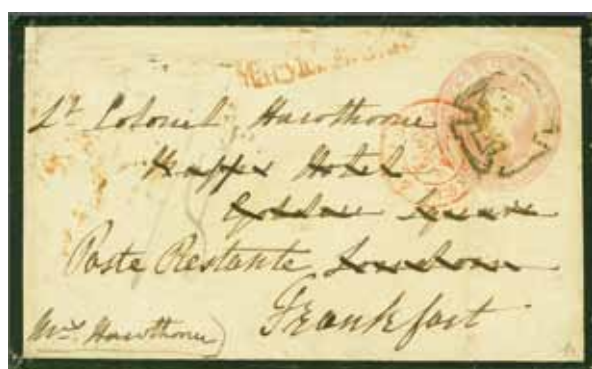 Lt Colonel Hawthorne
Hotel
Golden Square
Poste Restante London
Frankfort
Mrs. Hawthorne